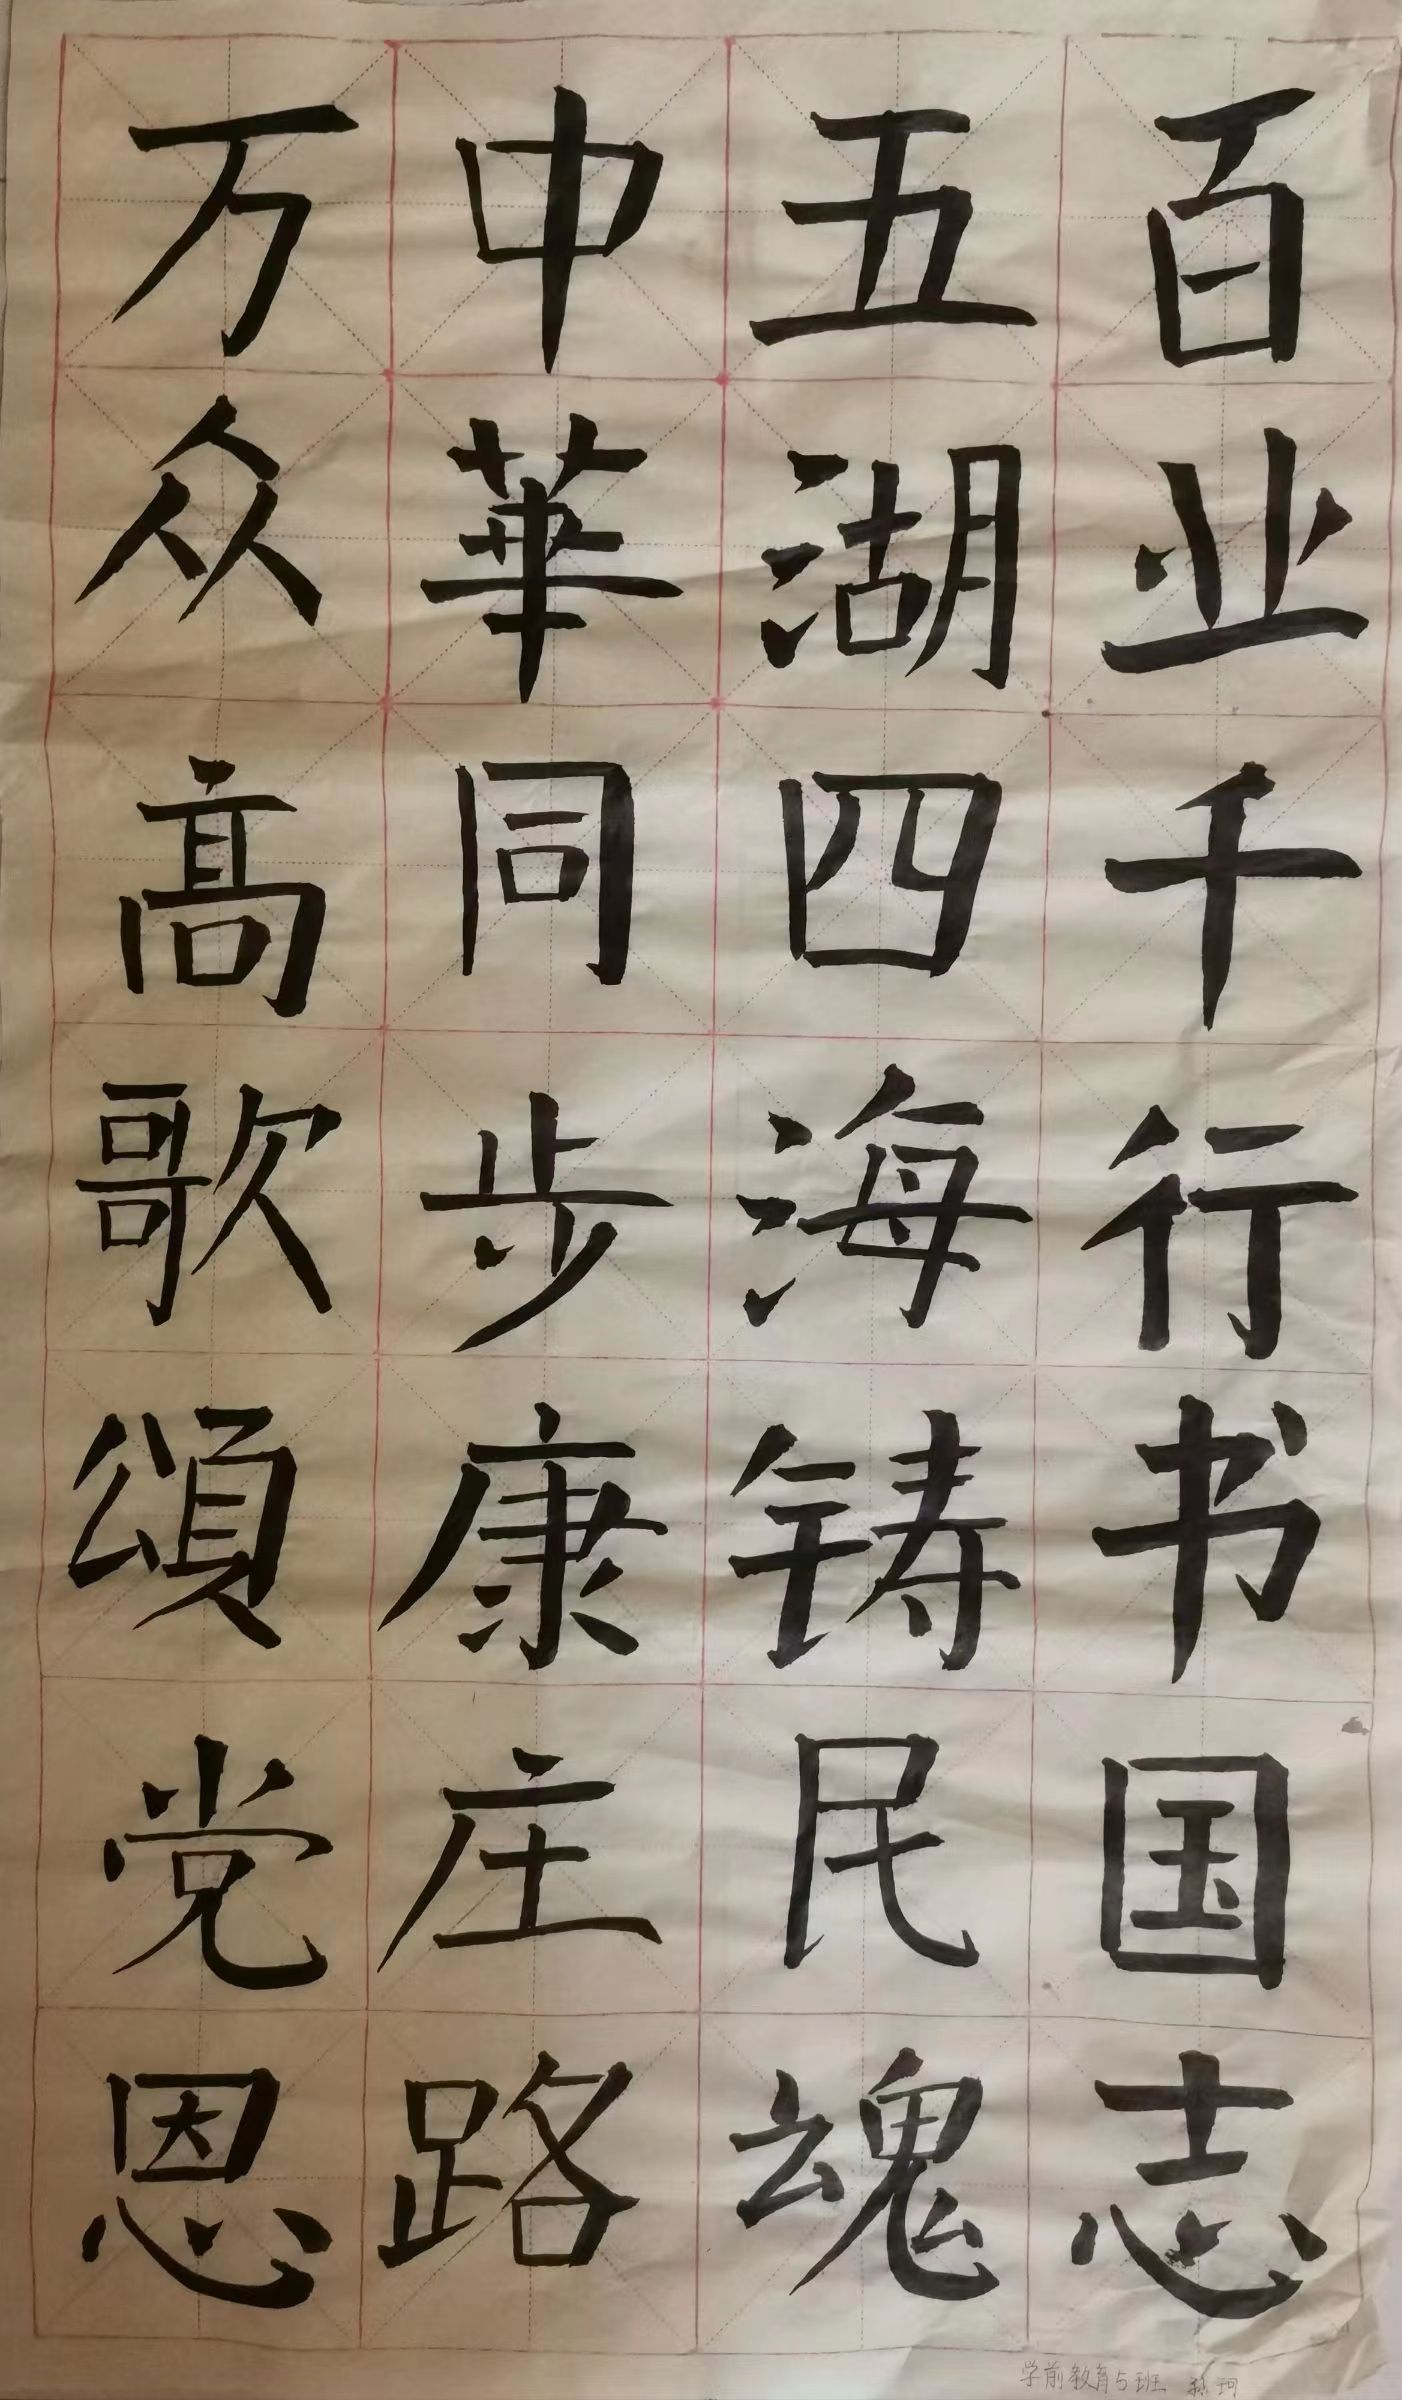 百业千行书国志
五湖四海铸民魂
中華同步康庄路
万众高歌頌党恩
学前教育5班